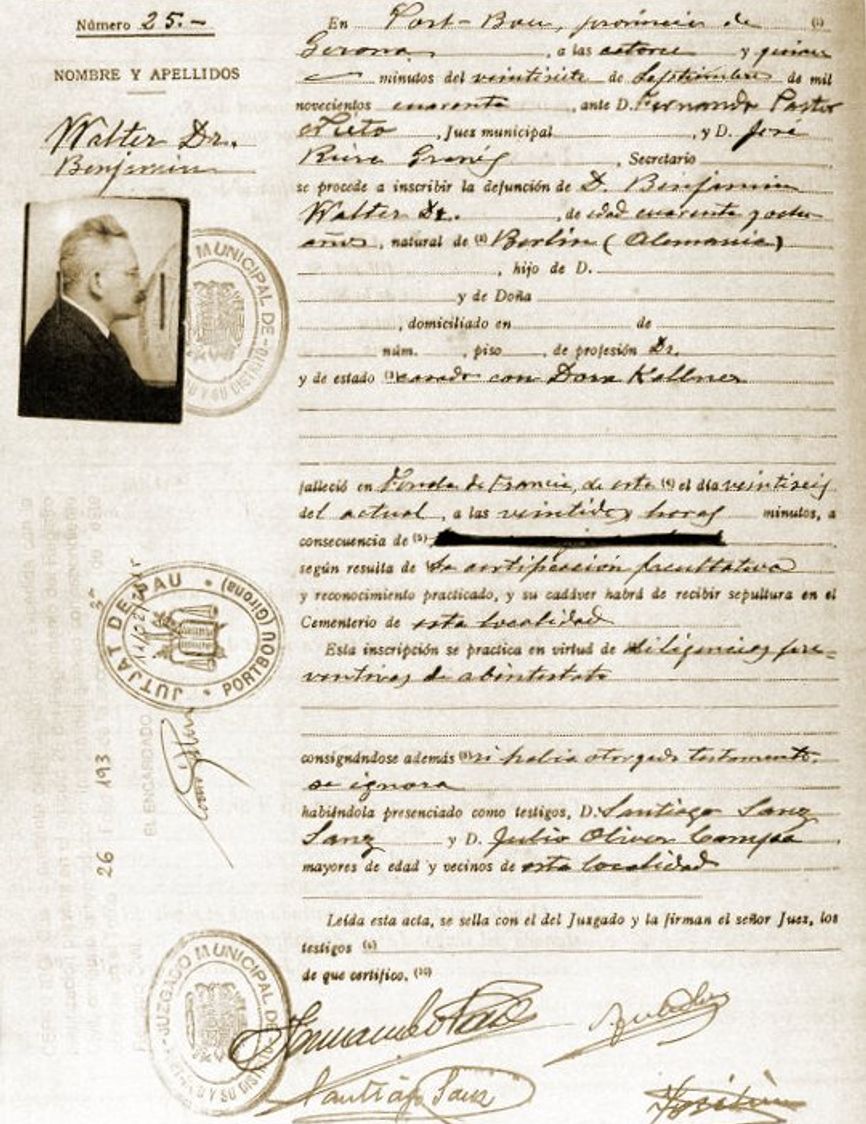 Número 25.-
NOMBRE Y APELLIDOS
Walter Dr.
Benjamin
En Port-Bou, provincia de (1)
Gerona, a las catorce y quince
minutos del veintisiete de Septiembre de mil
novecientos cuarenta, ante D. Fernando Pastor
Nieto, Juez municipal, y D. José
Riera Granés, Secretario
se procede a inscribir la defunción de D. Benjamin
Walter Dr., de edad cuarenta y ocho
años, natural de (2) Berlín (Alemania)
, hijo de D.
y de Doña
, domiciliado en de
núm. , piso , de profesión Dr.
y de estado (3) casado con Dora Kellner
falleció en Fonda de Francia, de esta (4) el día veintiseis
del actual, a las veintidos horas minutos, a
consecuencia de (5)
según resulta de la certificación facultativa
y reconocimiento practicado, y su cadáver habrá de recibir sepultura en el
Cementerio de esta localidad
Esta inscripción se practica en virtud de diligencias pre-
ventivas de abintestato
consignándose además (8) si había otorgado testamento,
se ignora
habiéndola presenciado como testigos, D. Santiago Sanz
Sanz y D. Julio Oliver Campa
mayores de edad y vecinos de esta localidad
Leída esta acta, se sella con el del Juzgado y la firman el señor Juez, los
testigos
de que certifico. (10)
Fernando Pastor
Santiago Sanz
MUNICIPAL DE
Y SU DISTRITO
JUTJAT DE PAU
PORTBOU (Girona)
EL ENCARGADO
26 193
JUZGADO MUNICIPAL DE
Y SU DISTRITO